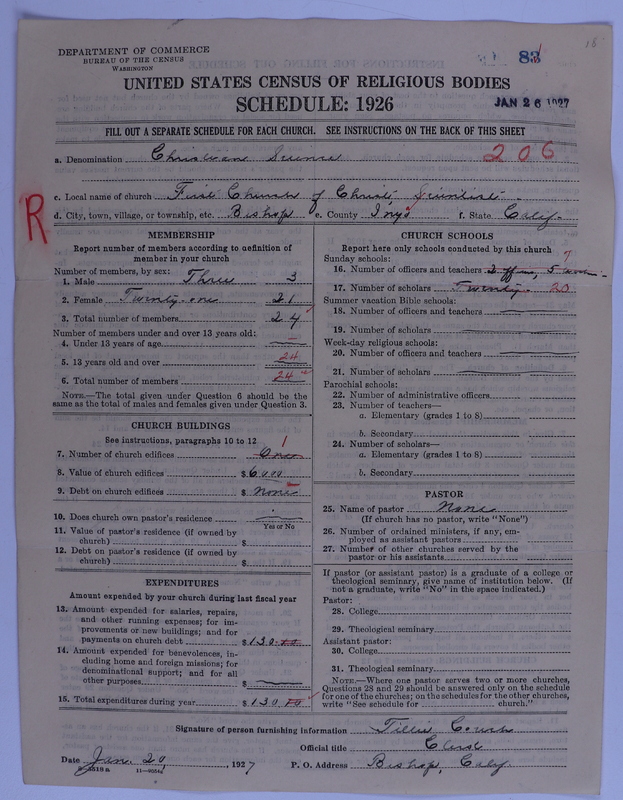 16
DEPARTMENT OF COMMERCE
BUREAU OF THE CENSUS
WASHINGTON
83
UNITED STATES CENSUS OF RELIGIOUS BODIES
SCHEDULE: 1926
JAN 26 1927
FILL OUT A SEPARATE SCHEDULE FOR EACH CHURCH. SEE INSTRUCTIONS ON THE BACK OF THIS SHEET
a. Denomination Christian Science 206
c. Local name of church First Church of Christ, Scientist
R
d. City, town, village, or township, etc. Bishop e. County Inyo f. State Calif.
MEMBERSHIP
Report number of members according to definition of
member in your church
Number of members, by sex:
1. Male Three 3
2. Female Twenty-one 21
3. Total number of members 24
Number of members under and over 13 years old:
4. Under 13 years of age
5. 13 years old and over 24
6. Total number of members 24
NOTE.—The total given under Question 6 should be
same as the total of males and females given under Question 3.
CHURCH BUILDINGS
See instructions, paragraphs 10 to 12
1
7. Number of church edifices One
8. Value of church edifices $6000
9. Debt on church edifices $ None
10. Does church own pastor's residence
Yes or No
11. Value of pastor's residence (if owned by
church) $
12. Debt on pastor's residence (if owned by
church) $
EXPENDITURES
Amount expended by your church during last fiscal year
13. Amount expended for salaries, repairs,
and other running expenses; for im-
provements or new buildings; and for
payments on church debt $130.00
14. Amount expended for benevolences, in-
cluding home and foreign missions; for
denominational support; and for all
other purposes $
15. Total expenditures during year $130.00
CHURCH SCHOOLS
Report here only schools conducted by this church
Sunday schools: 7
16. Number of officers and teachers 2 5
17. Number of scholars Twenty 20
Summer vacation Bible schools:
18. Number of officers and teachers
19. Number of scholars
Week-day religious schools:
20. Number of officers and teachers
21. Number of scholars
Parochial schools:
22. Number of administrative officers
23. Number of teachers—
a. Elementary (grades 1 to 8)
b. Secondary
24. Number of scholars—
a. Elementary (grades 1 to 8)
b. Secondary
PASTOR
25. Name of pastor None
(If church has no pastor, write "None")
26. Number of ordained ministers, if any, em-
ployed as assistant pastors
27. Number of other churches served by the
pastor or his assistants
If pastor (or assistant pastor) is a graduate of a college or
theological seminary, give name of institution below. (If
not a graduate, write "No" in the space indicated.)
Pastor:
28. College
29. Theological seminary
Assistant pastor:
30. College
31. Theological seminary
NOTE.—Where one pastor serves two or more churches,
Questions 28 and 29 should be answered only on the schedule
for one of the churches; on the schedules for the other churches,
write "See schedule for church."
Signature of person furnishing information
Official title Clerk
Date Jan. 20, , 1927 P. O. Address Bishop, Calif.